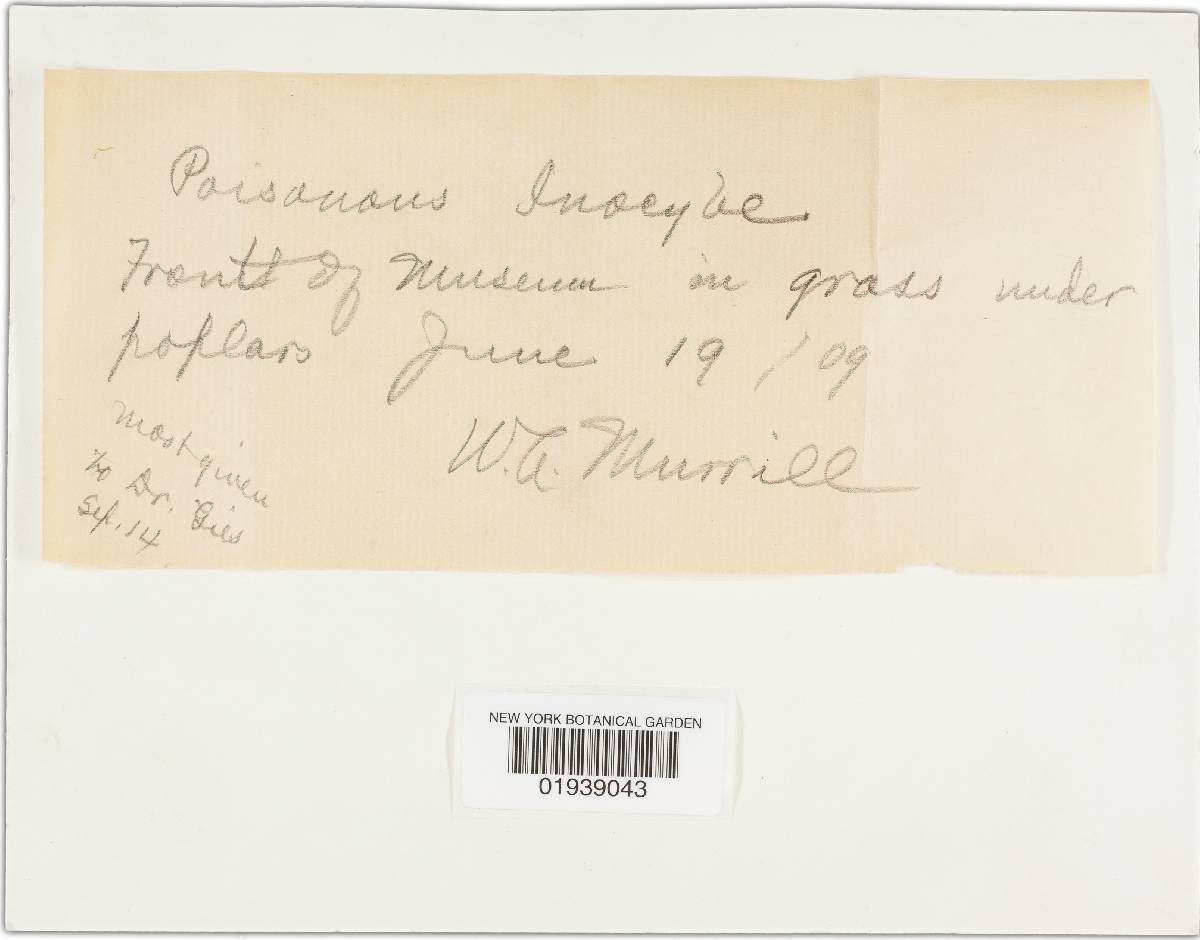 Poisonous Inocybe
Front of Museum in grass under
poplars June 19 / 09
W. A. Murrill
Most given
to Dr. Gies
Sep. 14
NEW YORK BOTANICAL GARDEN
01939043